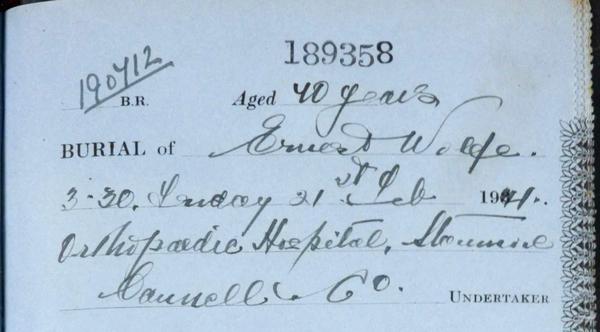 189358
190412
B.R. Aged 40 years
BURIAL of Ernest Wolfe.
3-30. Friday 21st Feb 1941.
Orthopaedic Hospital, Stanmore
& Co. UNDERTAKER